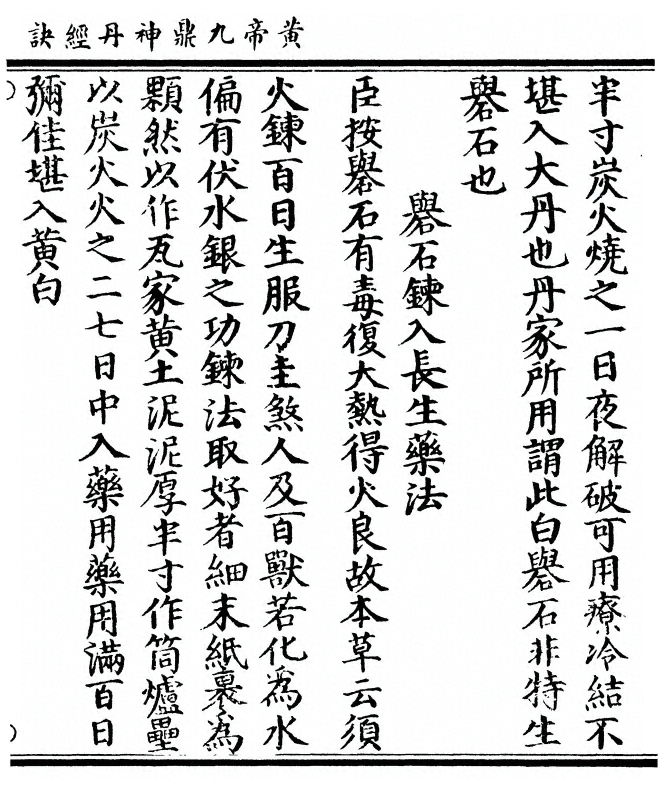 黃帝九鼎神丹經訣
半寸炭火燒之一日夜解破可用療冷結不
堪入大丹也丹家所用謂此白礜石非特生
礜石也
礜石鍊入長生藥法
臣按礜石有毒復大熱得火良故本草云須
火鍊百日生服刀圭煞人及百獸若化為水
偏有伏水銀之功鍊法取好者細末紙裹為
顆然以作瓦家黃土泥泥厚半寸作筒爐壘
以炭火火之二七日中入藥用藥用滿百日
彌佳堪入黃白